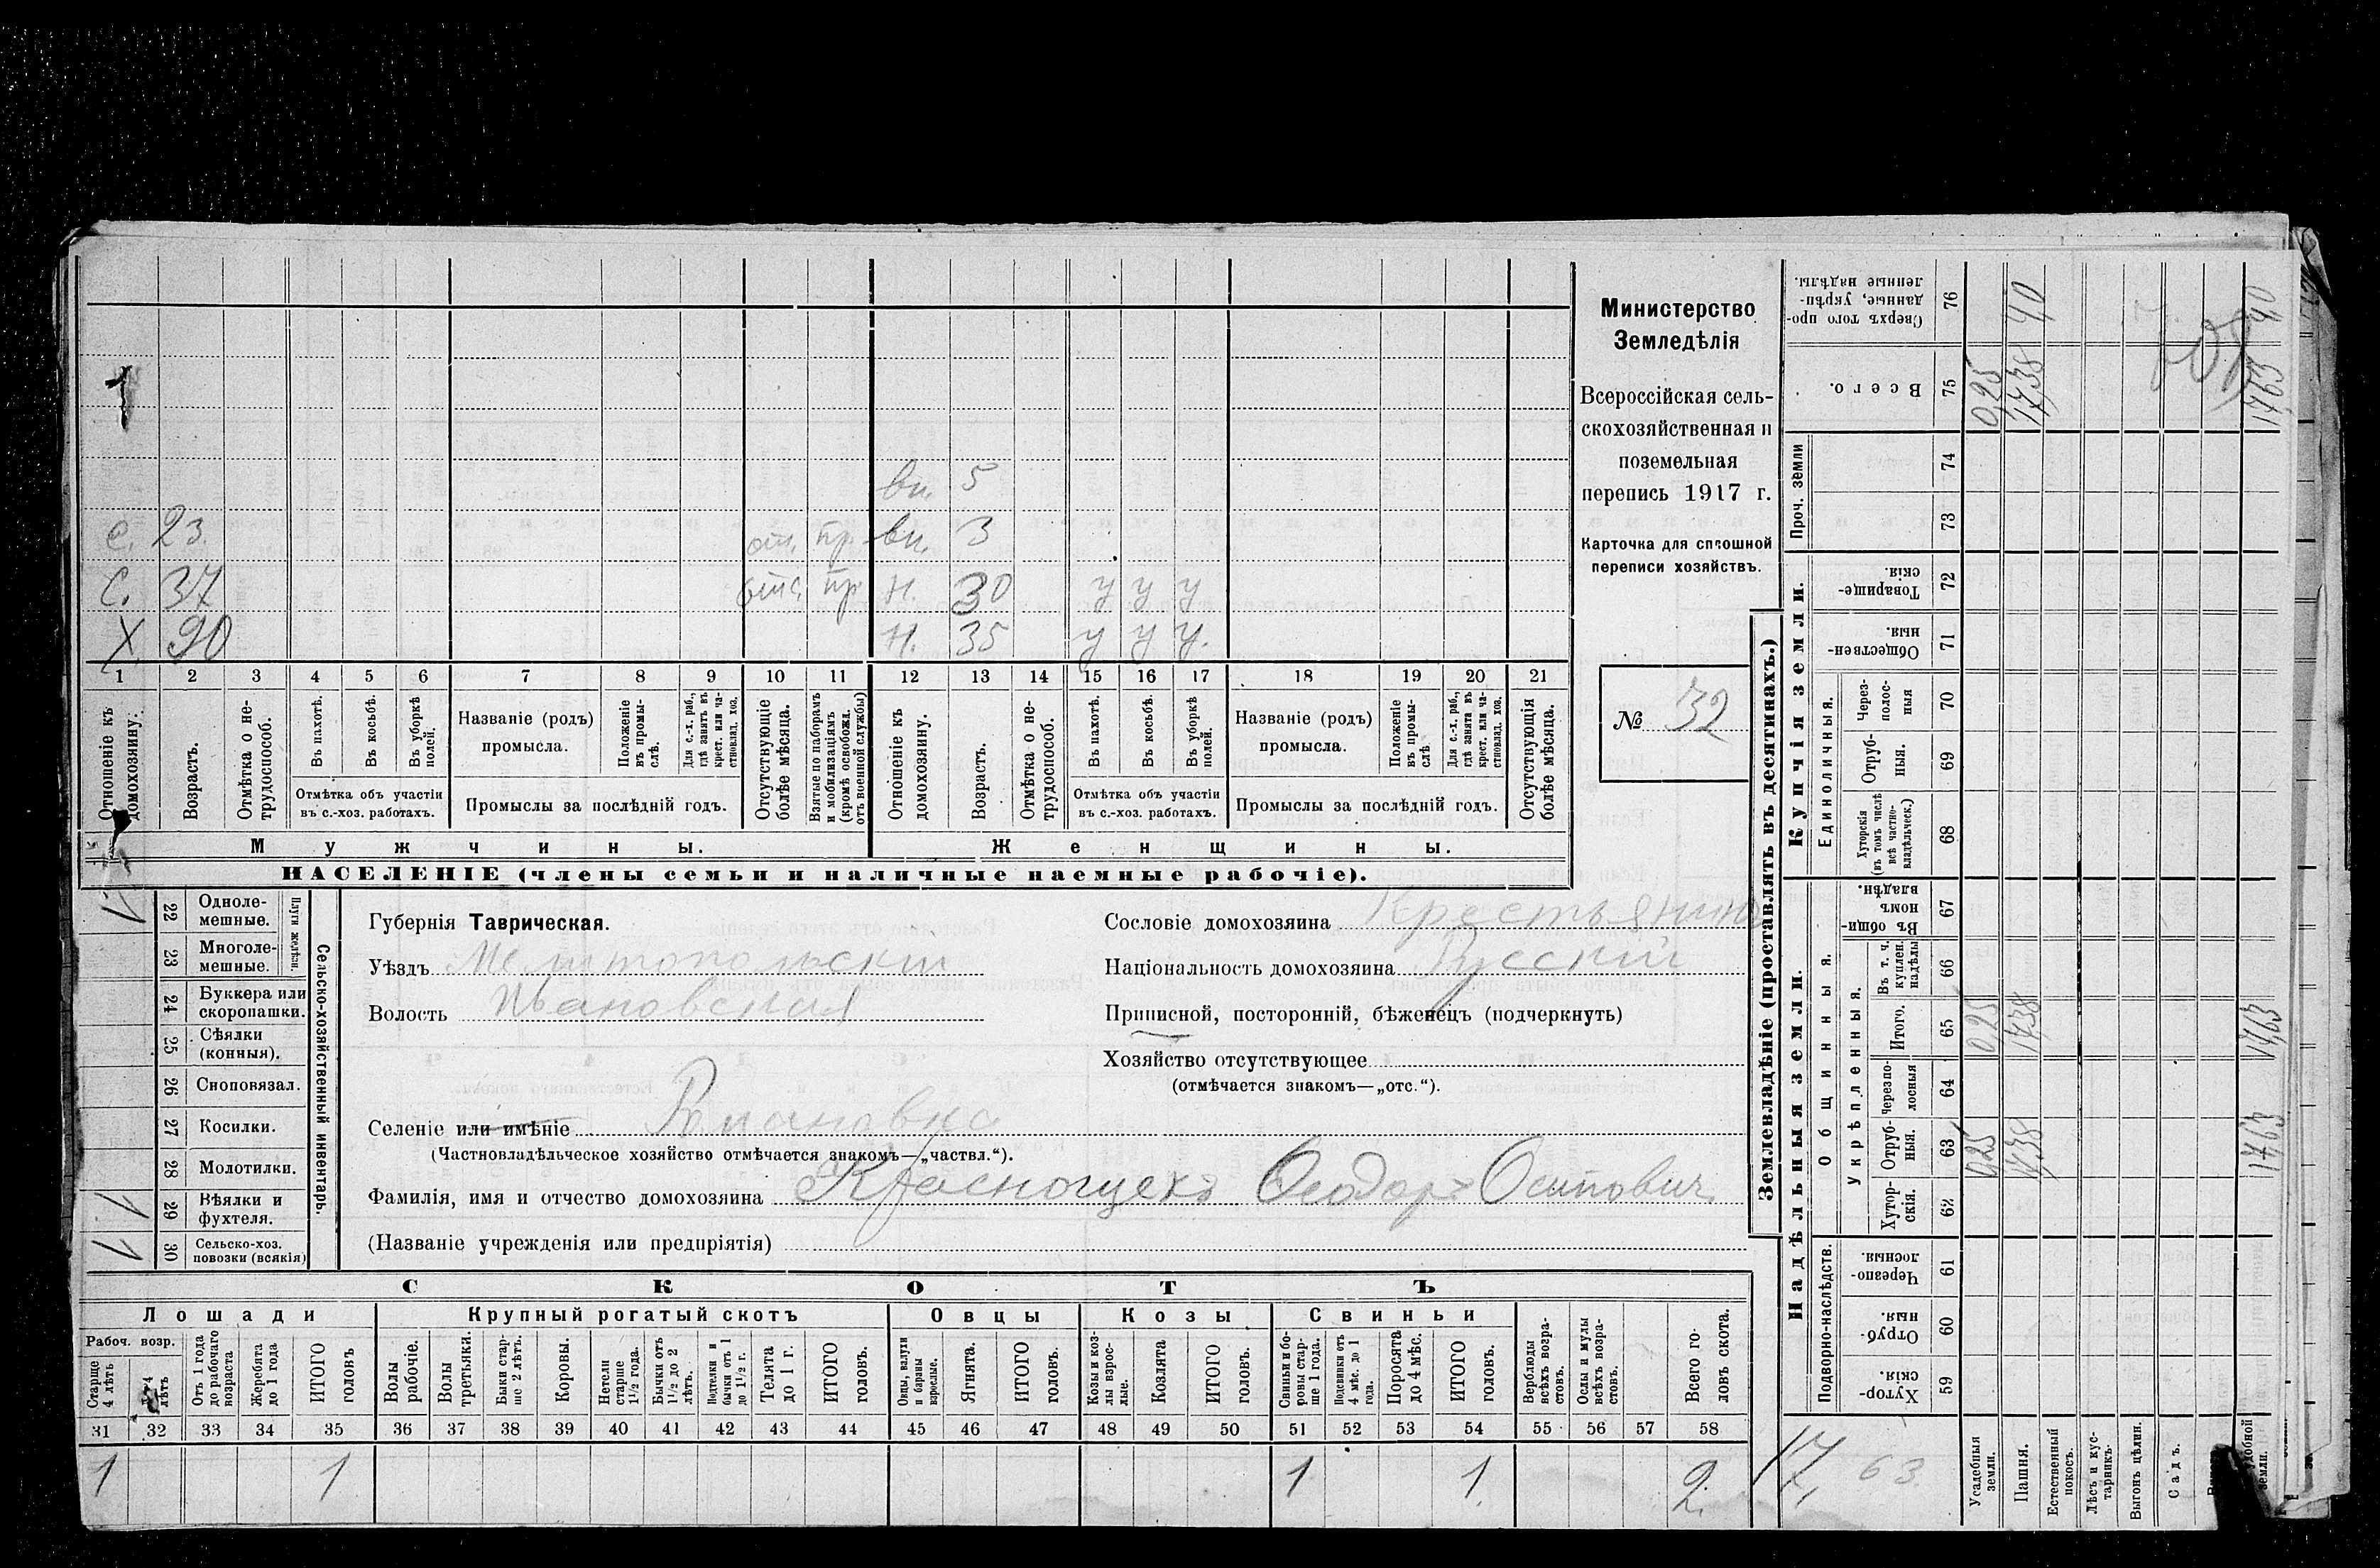 вн. 5
с. 23. от. пр. вн. 3
с. 37 отс. пр. н. 30 у у у
Х. 90 н. 35 у у у.
1 2 3 4 5 6 7 8 9 10 11 12 13 14 15 16 17 18 19 20 21
Отношеніе къ домохозяину.
Возрастъ.
Отмѣтка о не-трудоспособ.
Въ пахотѣ.
Въ косьбѣ.
Въ уборкѣ полей.
Отмѣтка объ участіи
въ с.-хоз. работахъ.
Названіе (родъ)
промысла.
Положеніе въ промы-слѣ.
Для с.-х. раб., гдѣ занятъ въ крест. или ча-стновлад. хоз.
Промыслы за послѣдній годъ.
Отсутствующіе болѣе мѣсяца.
Взятые по наборамъ и мобилизаціямъ (кромѣ освобожд. отъ военной службы)
Отношеніе къ домохозяину.
Возрастъ.
Отмѣтка о не-трудоспособ.
Въ пахотѣ.
Въ косьбѣ.
Въ уборкѣ полей.
Отмѣтка объ участіи
въ с.-хоз. работахъ.
Названіе (родъ)
промысла.
Положеніе въ промы-слѣ
Для с.-х. раб., гдѣ занята въ крест. или ча-стновлад. хоз.
Промыслы за послѣдній годъ.
Отсутствующія болѣе мѣсяца.
Мужчины.
Женщины.
НАСЕЛЕНІЕ (члены семьи и наличные наемные рабочіе).
Министерство
Земледѣлія
Всероссійская сель-
скохозяйственная и
поземельная
перепись 1917 г.
Карточка для сплошной
переписи хозяйствъ.
№ 32
22 Одноле-мешные.
23 Многоле-мешные.
Плуги желѣзн.
24 Буккера или скоропашки.
25 Сѣялки (конныя).
26 Сноповязал.
27 Косилки.
28 Молотилки.
29 Вѣялки и фухтеля.
30 Сельско-хоз. повозки (всякія)
Сельско-хозяйственный инвентарь.
Губернія Таврическая.
Уѣздъ Мелитопольскій
Волость Ивановская
Селеніе или имѣніе
(Частновладѣльческое хозяйство отмѣчается знакомъ—„частвл.“).
Фамилія, имя и отчество домохозяина Красногцекъ Ѳеодоръ Осиповичъ
(Названіе учрежденія или предпріятія)
Сословіе домохозяина Крестьянинъ
Національность домохозяина Русскій
Приписной, посторонній, бѣженецъ (подчеркнуть)
Хозяйство отсутствующее
(отмѣчается знакомъ—„отс.“).
СКОТЪ
Лошади
Крупный рогатый скотъ
Овцы
Козы
Свиньи
Рабоч. возр.
Старше 4 лѣтъ
лѣтъ
Отъ 1 года до рабочаго возраста
Жеребята до 1 года
ИТОГО головъ
Волы рабочіе.
Волы третьяки.
Быки стар-ше 2 лѣтъ.
Коровы.
Нетели старше 1½ года.
Бычки отъ 1½ до 2 лѣтъ.
Подтелки и бычки отъ 1 до 1½ г.
Телята до 1 г.
ИТОГО головъ.
Овцы, валухи и бараны взрослые.
Ягнята.
ИТОГО головъ.
Козы и коз-лы взрос-лые.
Козлята
ИТОГО головъ.
Свиньи и бо-ровы стар-ше 1 года.
Подсвинки отъ 4 мѣс. до 1 года.
Поросята до 4 мѣс.
ИТОГО головъ.
Верблюды всѣхъ возра-стовъ.
Ослы и мулы всѣхъ возра-стовъ.
Всего го-ловъ скота.
31 32 33 34 35 36 37 38 39 40 41 42 43 44 45 46 47 48 49 50 51 52 53 54 55 56 57 58
1 1 1 1. 2.
Землевладѣніе (проставлять въ десятинахъ.)
Надѣльныя земли.
Купчія земли.
Проч. земли
Подворно-наслѣдств.
Общинныя.
Укрѣпленныя.
Единоличныя.
Сверхъ того про-данные, укрѣп-ленные надѣлы. 76
Всего. 75
74
73
Товарище-скія. 72
Обществен-ныя. 71
Через-полос-ныя 70
Отруб-ныя. 69
Хуторскія (въ томъ числѣ всѣ частно-владѣльческ.) 68
Въ общи-номъ владѣн. 67
Въ т. ч. куплен. надѣлы 66
Итого. 65
Черезпо-лосныя 64
Отруб-ныя. 63
Хутор-скія. 62
Черезпо-лосныя. 61
Отруб-ныя. 60
Хутор-скія. 59
Усадебныя земли. 0,25 0,25 0,25
Пашня. 17,38 17,38 17,38 40
Естественный покосъ.
Лѣсъ и кус-тарникъ.
Выгонъ цѣлин.
Садъ.
удобной земли. 17,63 17,63 17,63 40
17, 63